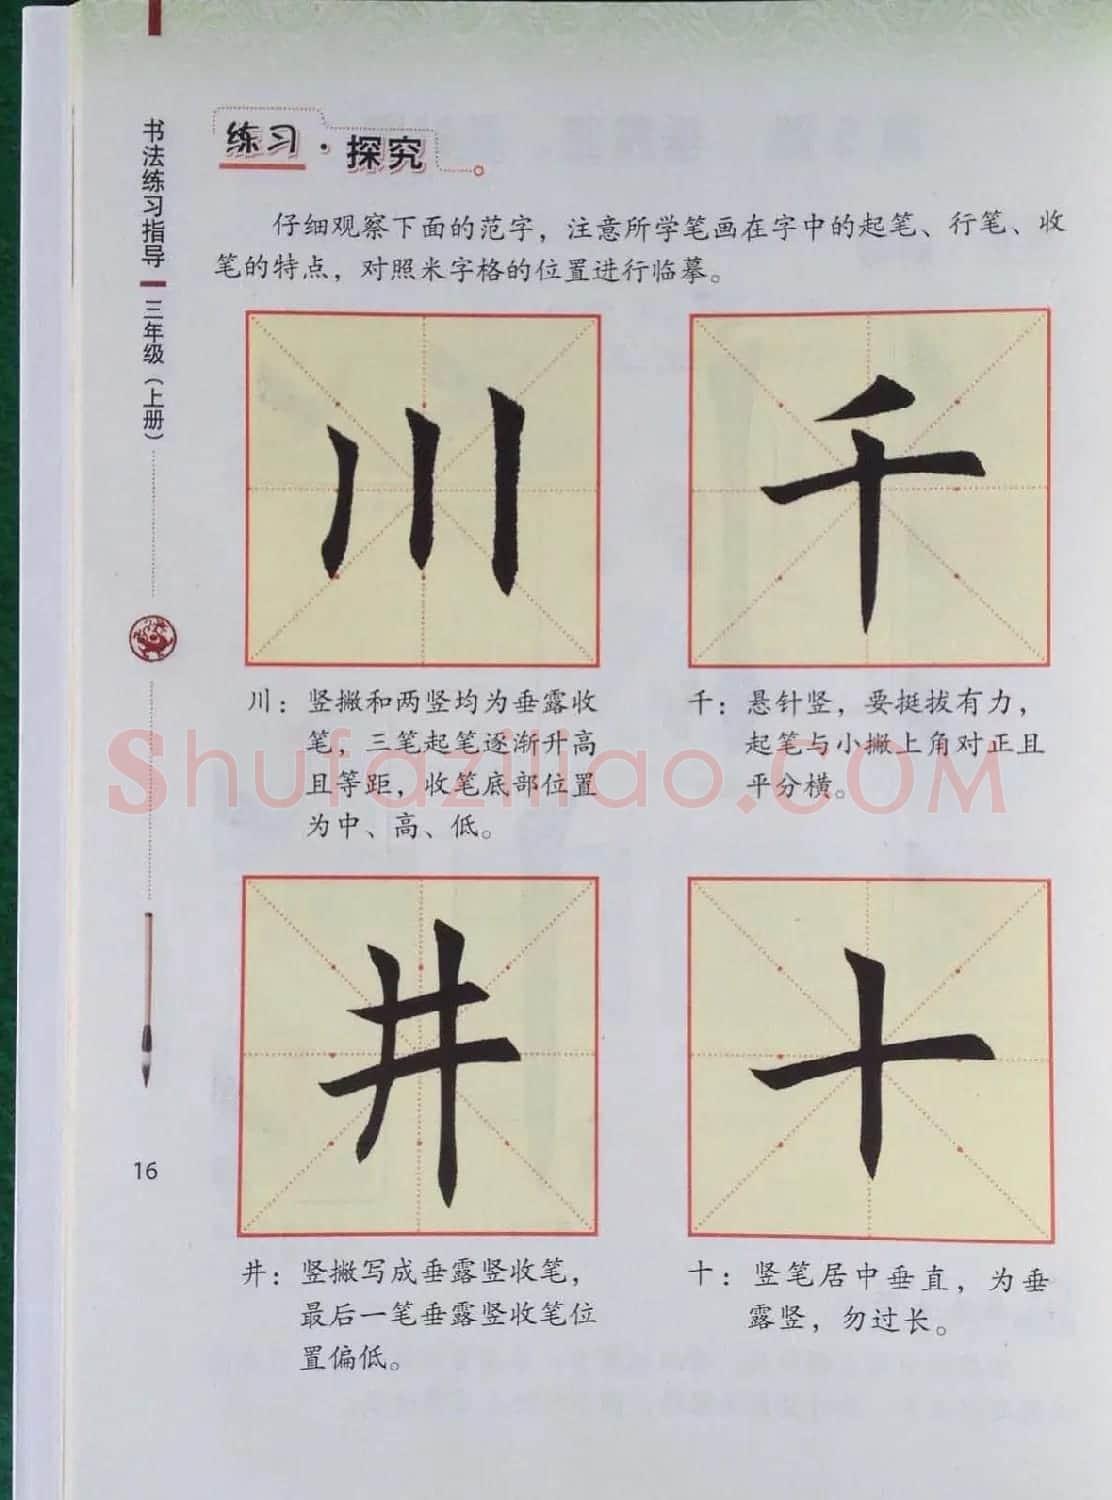 书法练习指导
三年级（上册）
16
练习·探究
仔细观察下面的范字，注意所学笔画在字中的起笔、行笔、收
笔的特点，对照米字格的位置进行临摹。
川
千
川：竖撇和两竖均为垂露收
笔，三笔起笔逐渐升高
且等距，收笔底部位置
为中、高、低。
千：悬针竖，要挺拔有力，
起笔与小撇上角对正且
平分横。
Shufaziliao.COM
井
十
井：竖撇写成垂露竖收笔，
最后一笔垂露竖收笔位
置偏低。
十：竖笔居中垂直，为垂
露竖，勿过长。